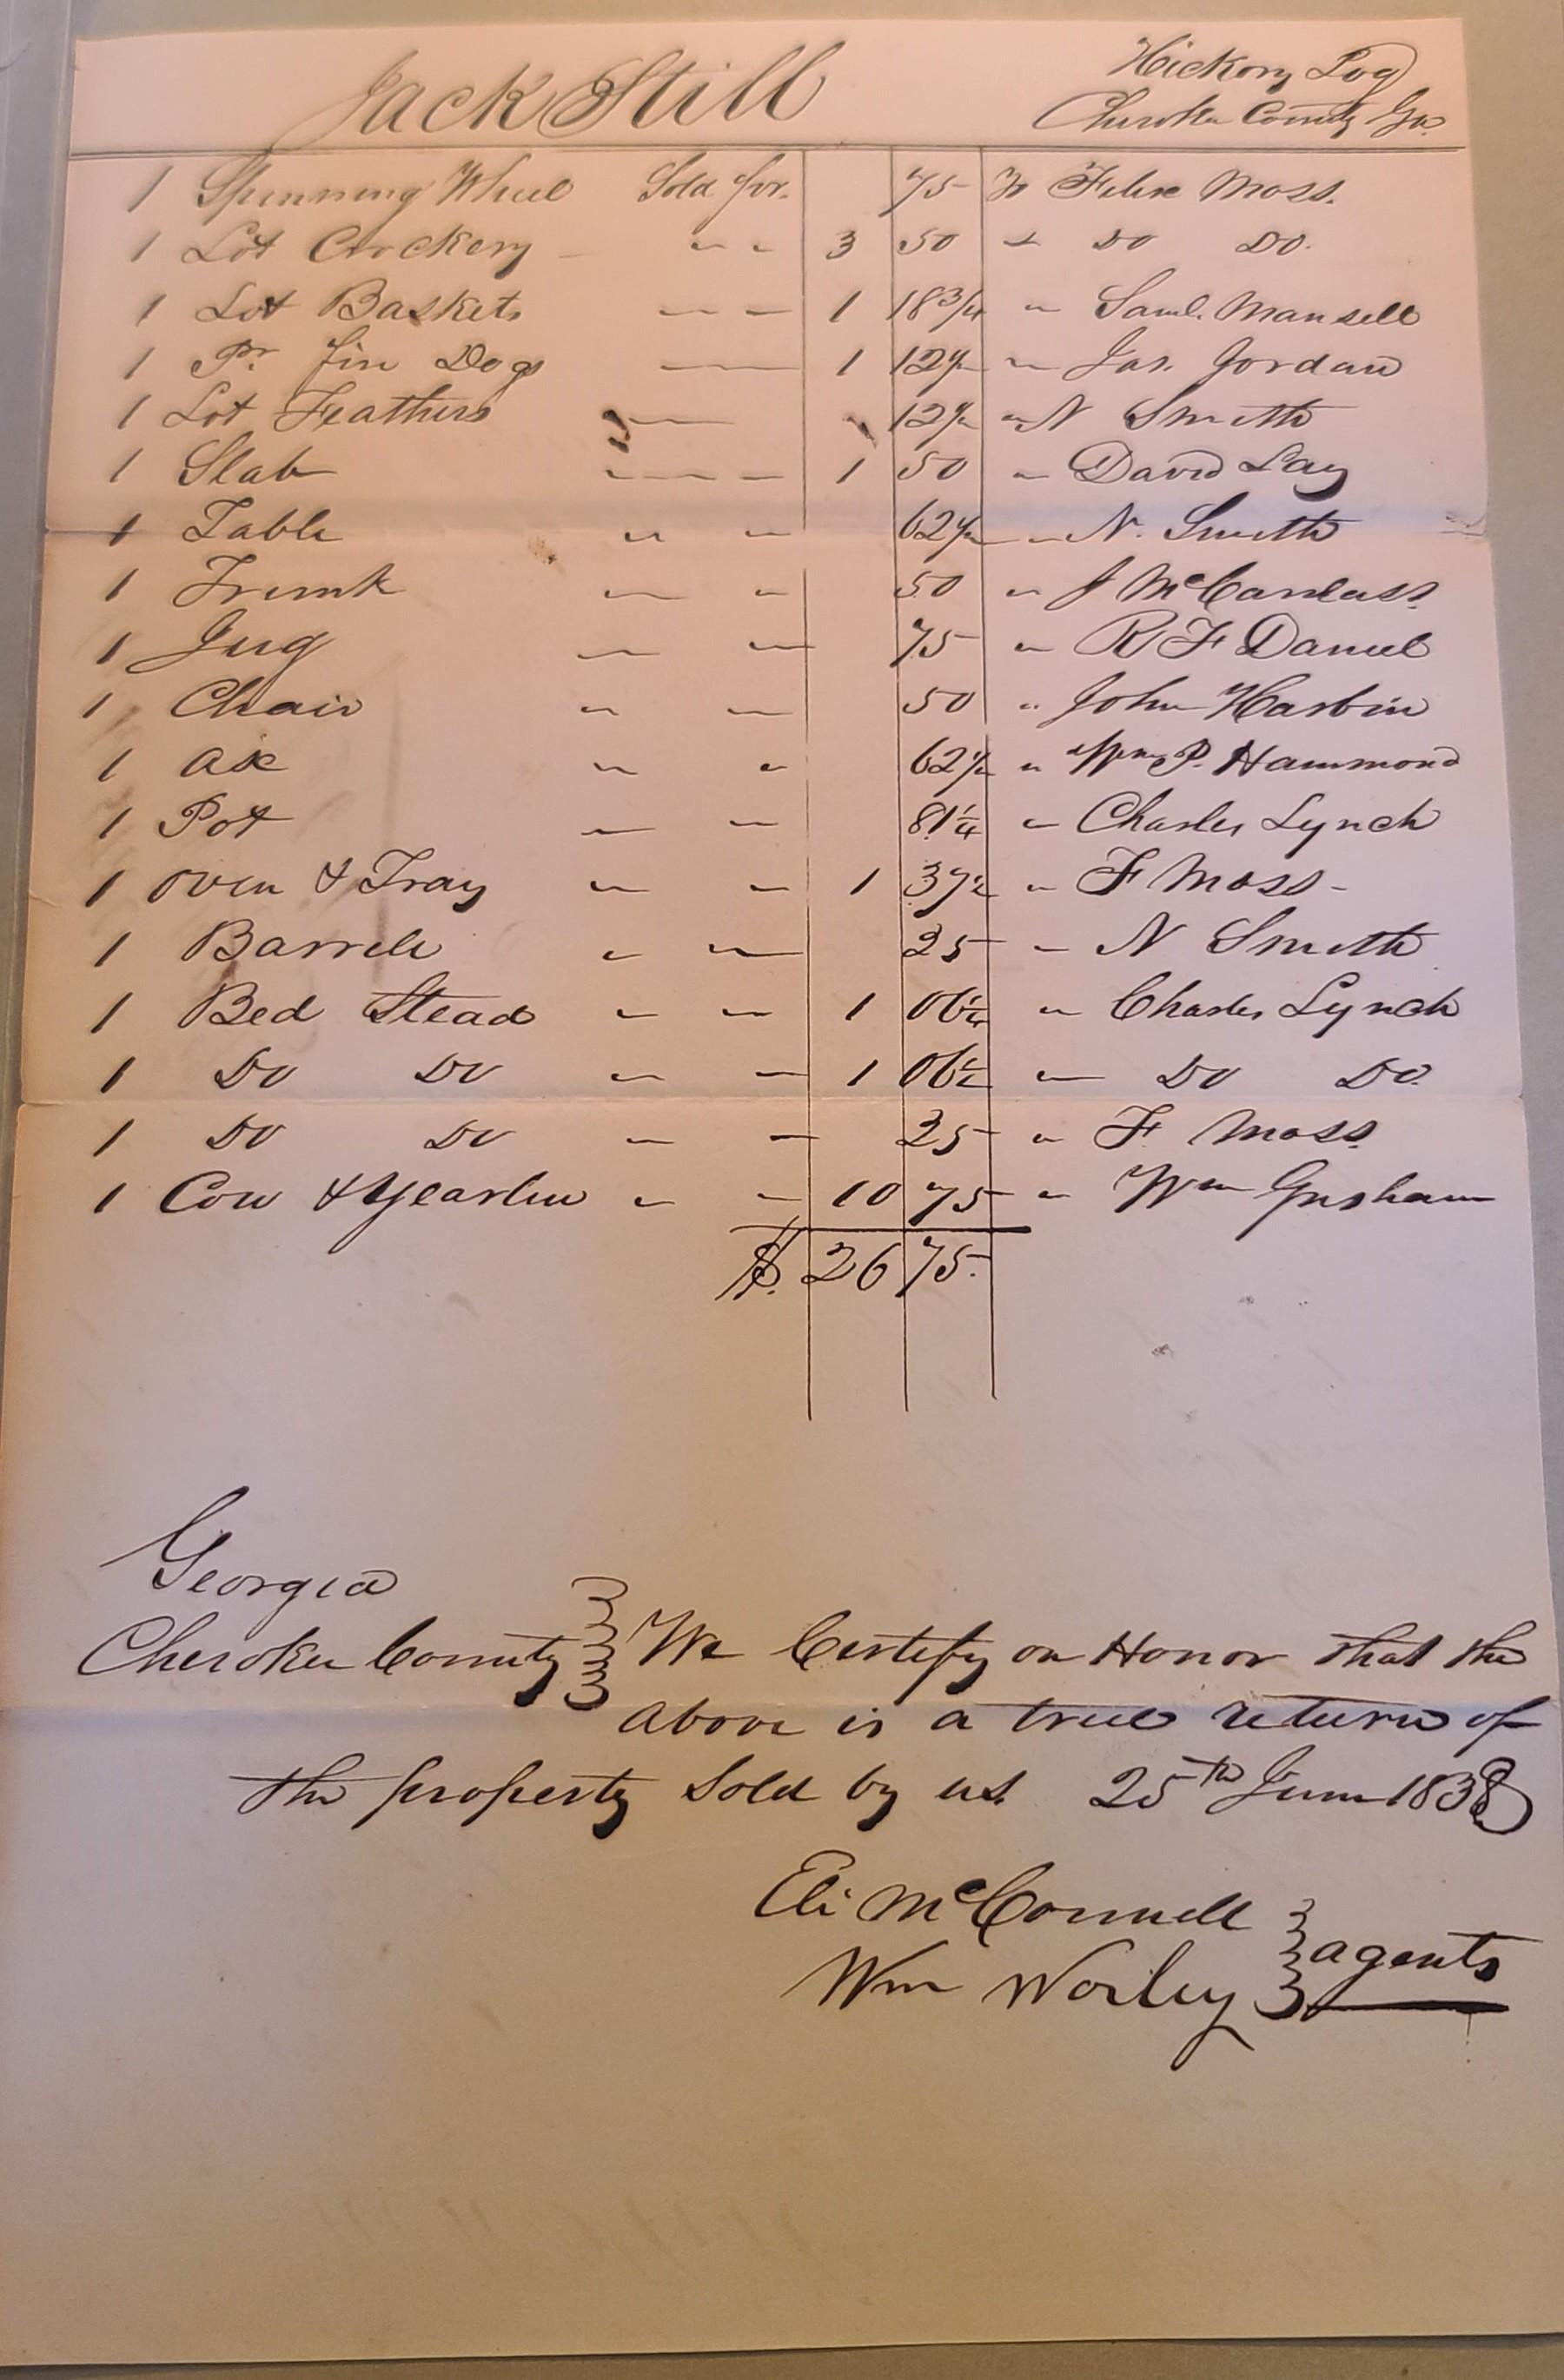 Jack Still
Hickory Log
Cherokee County Ga.
1 Spinning Wheel Sold for. 75 To Felix Moss.
1 Lot Crockery - " " 3 50 " Do Do.
1 Lot Baskets " " 1 18 3/4 " Saml. Mansell
1 Pr. fire Dogs " 1 12 1/2 " Jas. Jordan
1 Lot Feathers " 12 1/2 " N Smith
1 Slab " " 1 50 " David Lay
1 Table " " 62 1/2 " N. Smith
1 Trunk " " 50 " J McCanlass.
1 Jug " " 75 " R F Daniel
1 Chair " " 50 " John Harbin
1 ax " " 62 1/2 " Wm P. Hammond
1 Pot " " 81 1/4 " Charles Lynch
1 oven & Tray " " 1 37 1/2 " F Moss -
1 Barrell " " 25 " N Smith
1 Bed Stead " " 1 06 1/4 " Charles Lynch
1 Do Do " " 1 06 1/4 " Do Do.
1 Do Do " " 25 " F. Moss.
1 Cow & Yearlin " " 10 75 " Wm Grisham
$. 26 75.
Georgia
Cherokee County } We Certify on Honor that the
above is a true return of
the property Sold by us. 25th June 1838
Eli McConnell
Wm Worley } agents